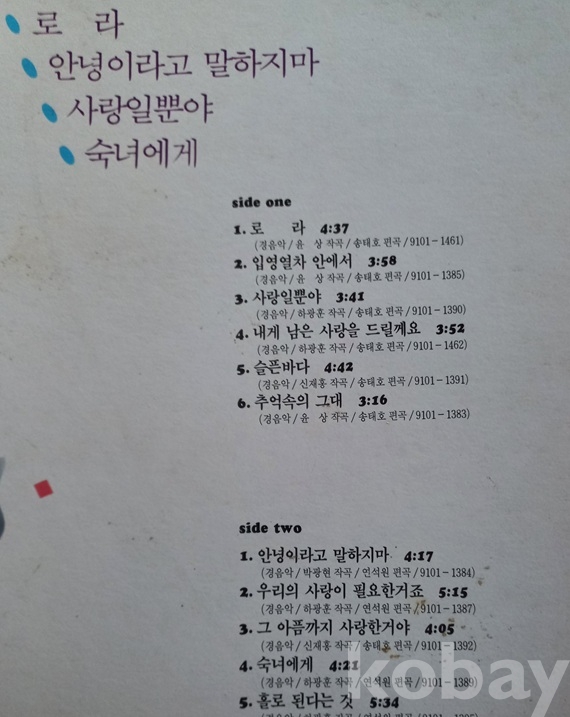 로 라
안녕이라고 말하지마
사랑일뿐야
숙녀에게
side one
1. 로 라 4:37
(경음악/윤 상 작곡/송태호 편곡/9101-1461)
2. 입영열차 안에서 3:58
(경음악/윤 상 작곡/송태호 편곡/9101-1385)
3. 사랑일뿐야 3:41
(경음악/하광훈 작곡/송태호 편곡/9101-1390)
4. 내게 남은 사랑을 드릴께요 3:52
(경음악/하광훈 작곡/송태호 편곡/9101-1462)
5. 슬픈바다 4:42
(경음악/신재홍 작곡/송태호 편곡/9101-1391)
6. 추억속의 그대 3:16
(경음악/윤 상 작곡/송태호 편곡/9101-1383)
side two
1. 안녕이라고 말하지마 4:17
(경음악/박광현 작곡/연석원 편곡/9101-1384)
2. 우리의 사랑이 필요한거죠 5:15
(경음악/하광훈 작곡/연석원 편곡/9101-1387)
3. 그 아픔까지 사랑한거야 4:05
(경음악/신재홍 작곡/송태호 편곡/9101-1392)
4. 숙녀에게 4:21
(경음악/하광훈 작곡/연석원 편곡/9101-1389)
5. 홀로 된다는 것 5:34
kobay